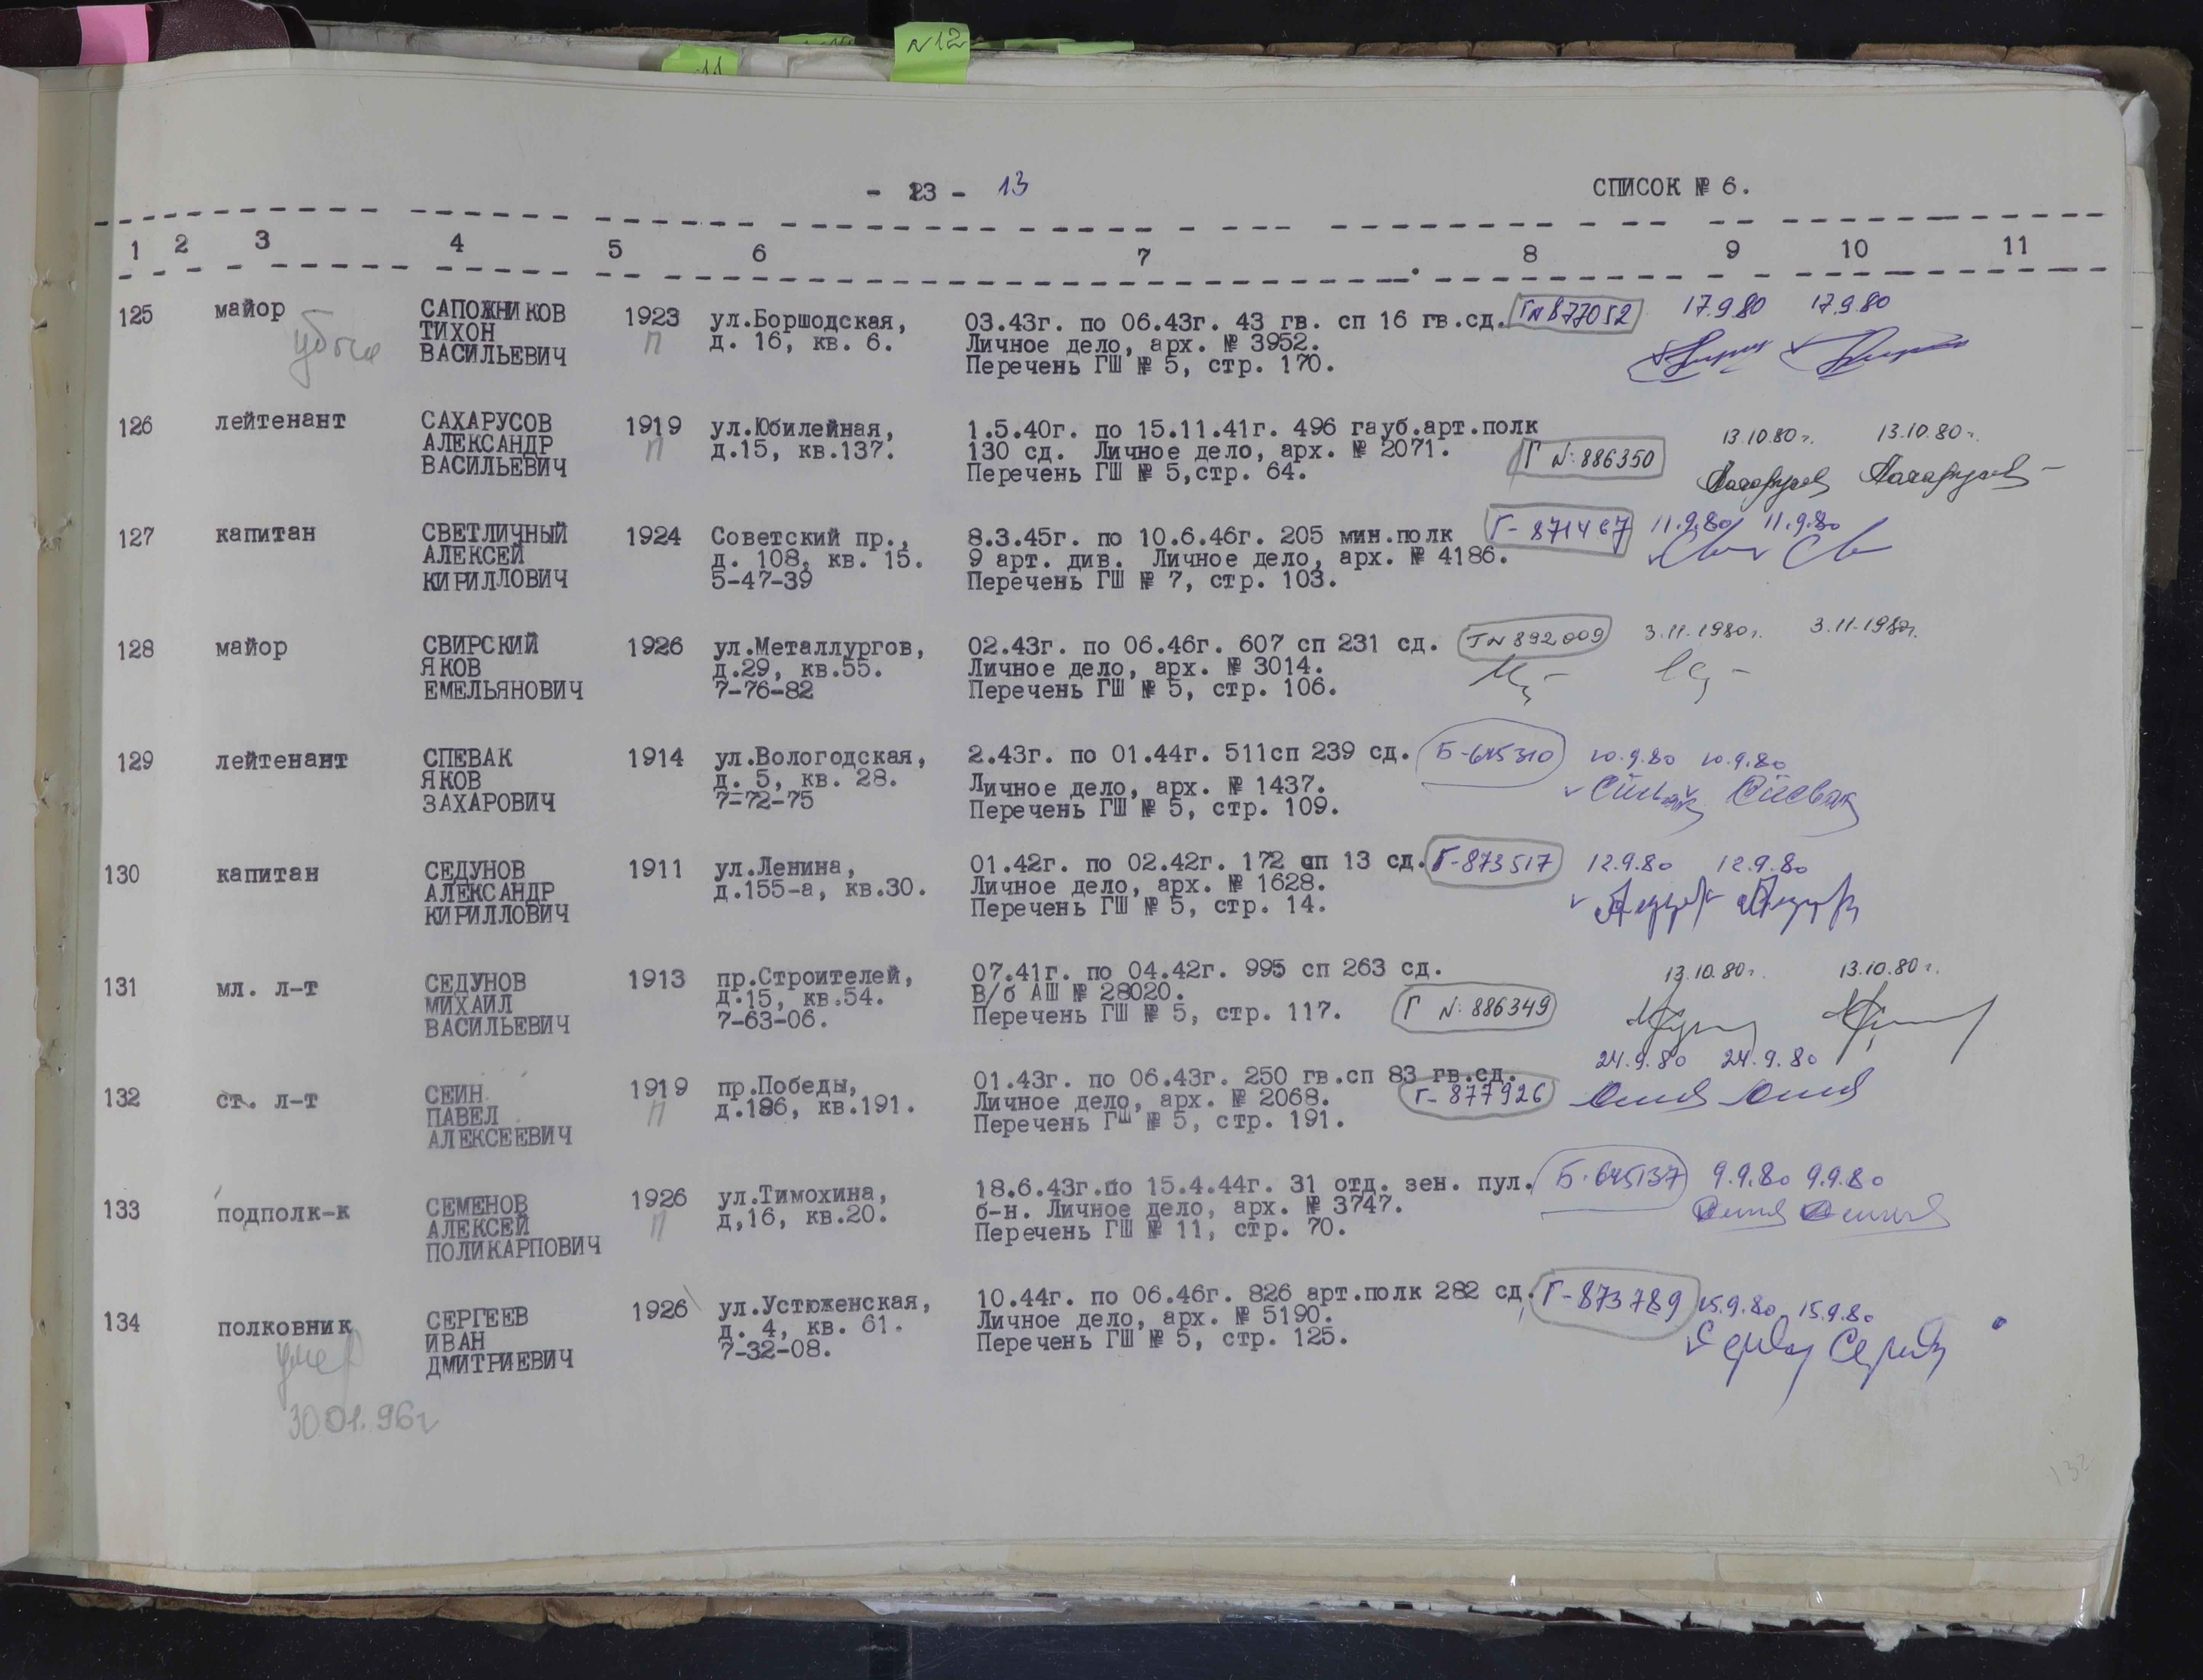 N12
11
- 23 - 13
СПИСОК № 6.
1 2 3 4 5 6 7 8 9 10 11
125 майор САПОЖНИКОВ 1923 ул.Боршодская, 03.43г. по 06.43г. 43 гв. сп 16 гв.сд. ГN877052 17.9.80 17.9.80
убыл ТИХОН П д. 16, кв. 6. Личное дело, арх. № 3952.
ВАСИЛЬЕВИЧ Перечень ГШ № 5, стр. 170.
126 лейтенант САХАРУСОВ 1919 ул.Юбилейная, 1.5.40г. по 15.11.41г. 496 гауб.арт.полк 13.10.80г. 13.10.80г.
АЛЕКСАНДР П д.15, кв.137. 130 сд. Личное дело, арх. № 2071. Г N: 886350
ВАСИЛЬЕВИЧ Перечень ГШ № 5,стр. 64.
127 капитан СВЕТЛИЧНЫЙ 1924 Советский пр., 8.3.45г. по 10.6.46г. 205 мин.полк Г-871467 11.9.80 11.9.80
АЛЕКСЕЙ д. 108, кв. 15. 9 арт. див. Личное дело, арх. № 4186.
КИРИЛЛОВИЧ 5-47-39 Перечень ГШ № 7, стр. 103.
128 майор СВИРСКИЙ 1926 ул.Металлургов, 02.43г. по 06.46г. 607 сп 231 сд. ГN892009 3.11.1980г. 3.11.1980г.
ЯКОВ д.29, кв.55. Личное дело, арх. № 3014.
ЕМЕЛЬЯНОВИЧ 7-76-82 Перечень ГШ № 5, стр. 106.
129 лейтенант СПЕВАК 1914 ул.Вологодская, 2.43г. по 01.44г. 511сп 239 сд. Б-645310 10.9.80 10.9.80
ЯКОВ д. 5, кв. 28. Личное дело, арх. № 1437. Спевак Спевак
ЗАХАРОВИЧ 7-72-75 Перечень ГШ № 5, стр. 109.
130 капитан СЕДУНОВ 1911 ул.Ленина, 01.42г. по 02.42г. 172 сп 13 сд. Г-873517 12.9.80 12.9.80
АЛЕКСАНДР д.155-а, кв.30. Личное дело, арх. № 1628.
КИРИЛЛОВИЧ Перечень ГШ № 5, стр. 14.
131 мл. л-т СЕДУНОВ 1913 пр.Строителей, 07.41г. по 04.42г. 995 сп 263 сд. 13.10.80г. 13.10.80г.
МИХАИЛ д.15, кв.54. В/б АШ № 28020. Г N: 886349
ВАСИЛЬЕВИЧ 7-63-06. Перечень ГШ № 5, стр. 117.
132 ст. л-т СЕИН 1919 пр.Победы, 01.43г. по 06.43г. 250 гв.сп 83 гв.сд. 24.9.80 24.9.80
ПАВЕЛ П д.196, кв.191. Личное дело, арх. № 2068. Г-877926
АЛЕКСЕЕВИЧ Перечень ГШ № 5, стр. 191.
133 подполк-к СЕМЕНОВ 1926 ул.Тимохина, 18.6.43г.по 15.4.44г. 31 отд. зен. пул. Б-645137 9.9.80 9.9.80
АЛЕКСЕЙ П д,16, кв.20. б-н. Личное дело, арх. № 3747.
ПОЛИКАРПОВИЧ Перечень ГШ № 11, стр. 70.
134 полковник СЕРГЕЕВ 1926 ул.Устюженская, 10.44г. по 06.46г. 826 арт.полк 282 сд. Г-873789 15.9.80 15.9.80
умер ИВАН д. 4, кв. 61. Личное дело, арх. № 5190.
ДМИТРИЕВИЧ 7-32-08. Перечень ГШ № 5, стр. 125.
30.01.96г
132